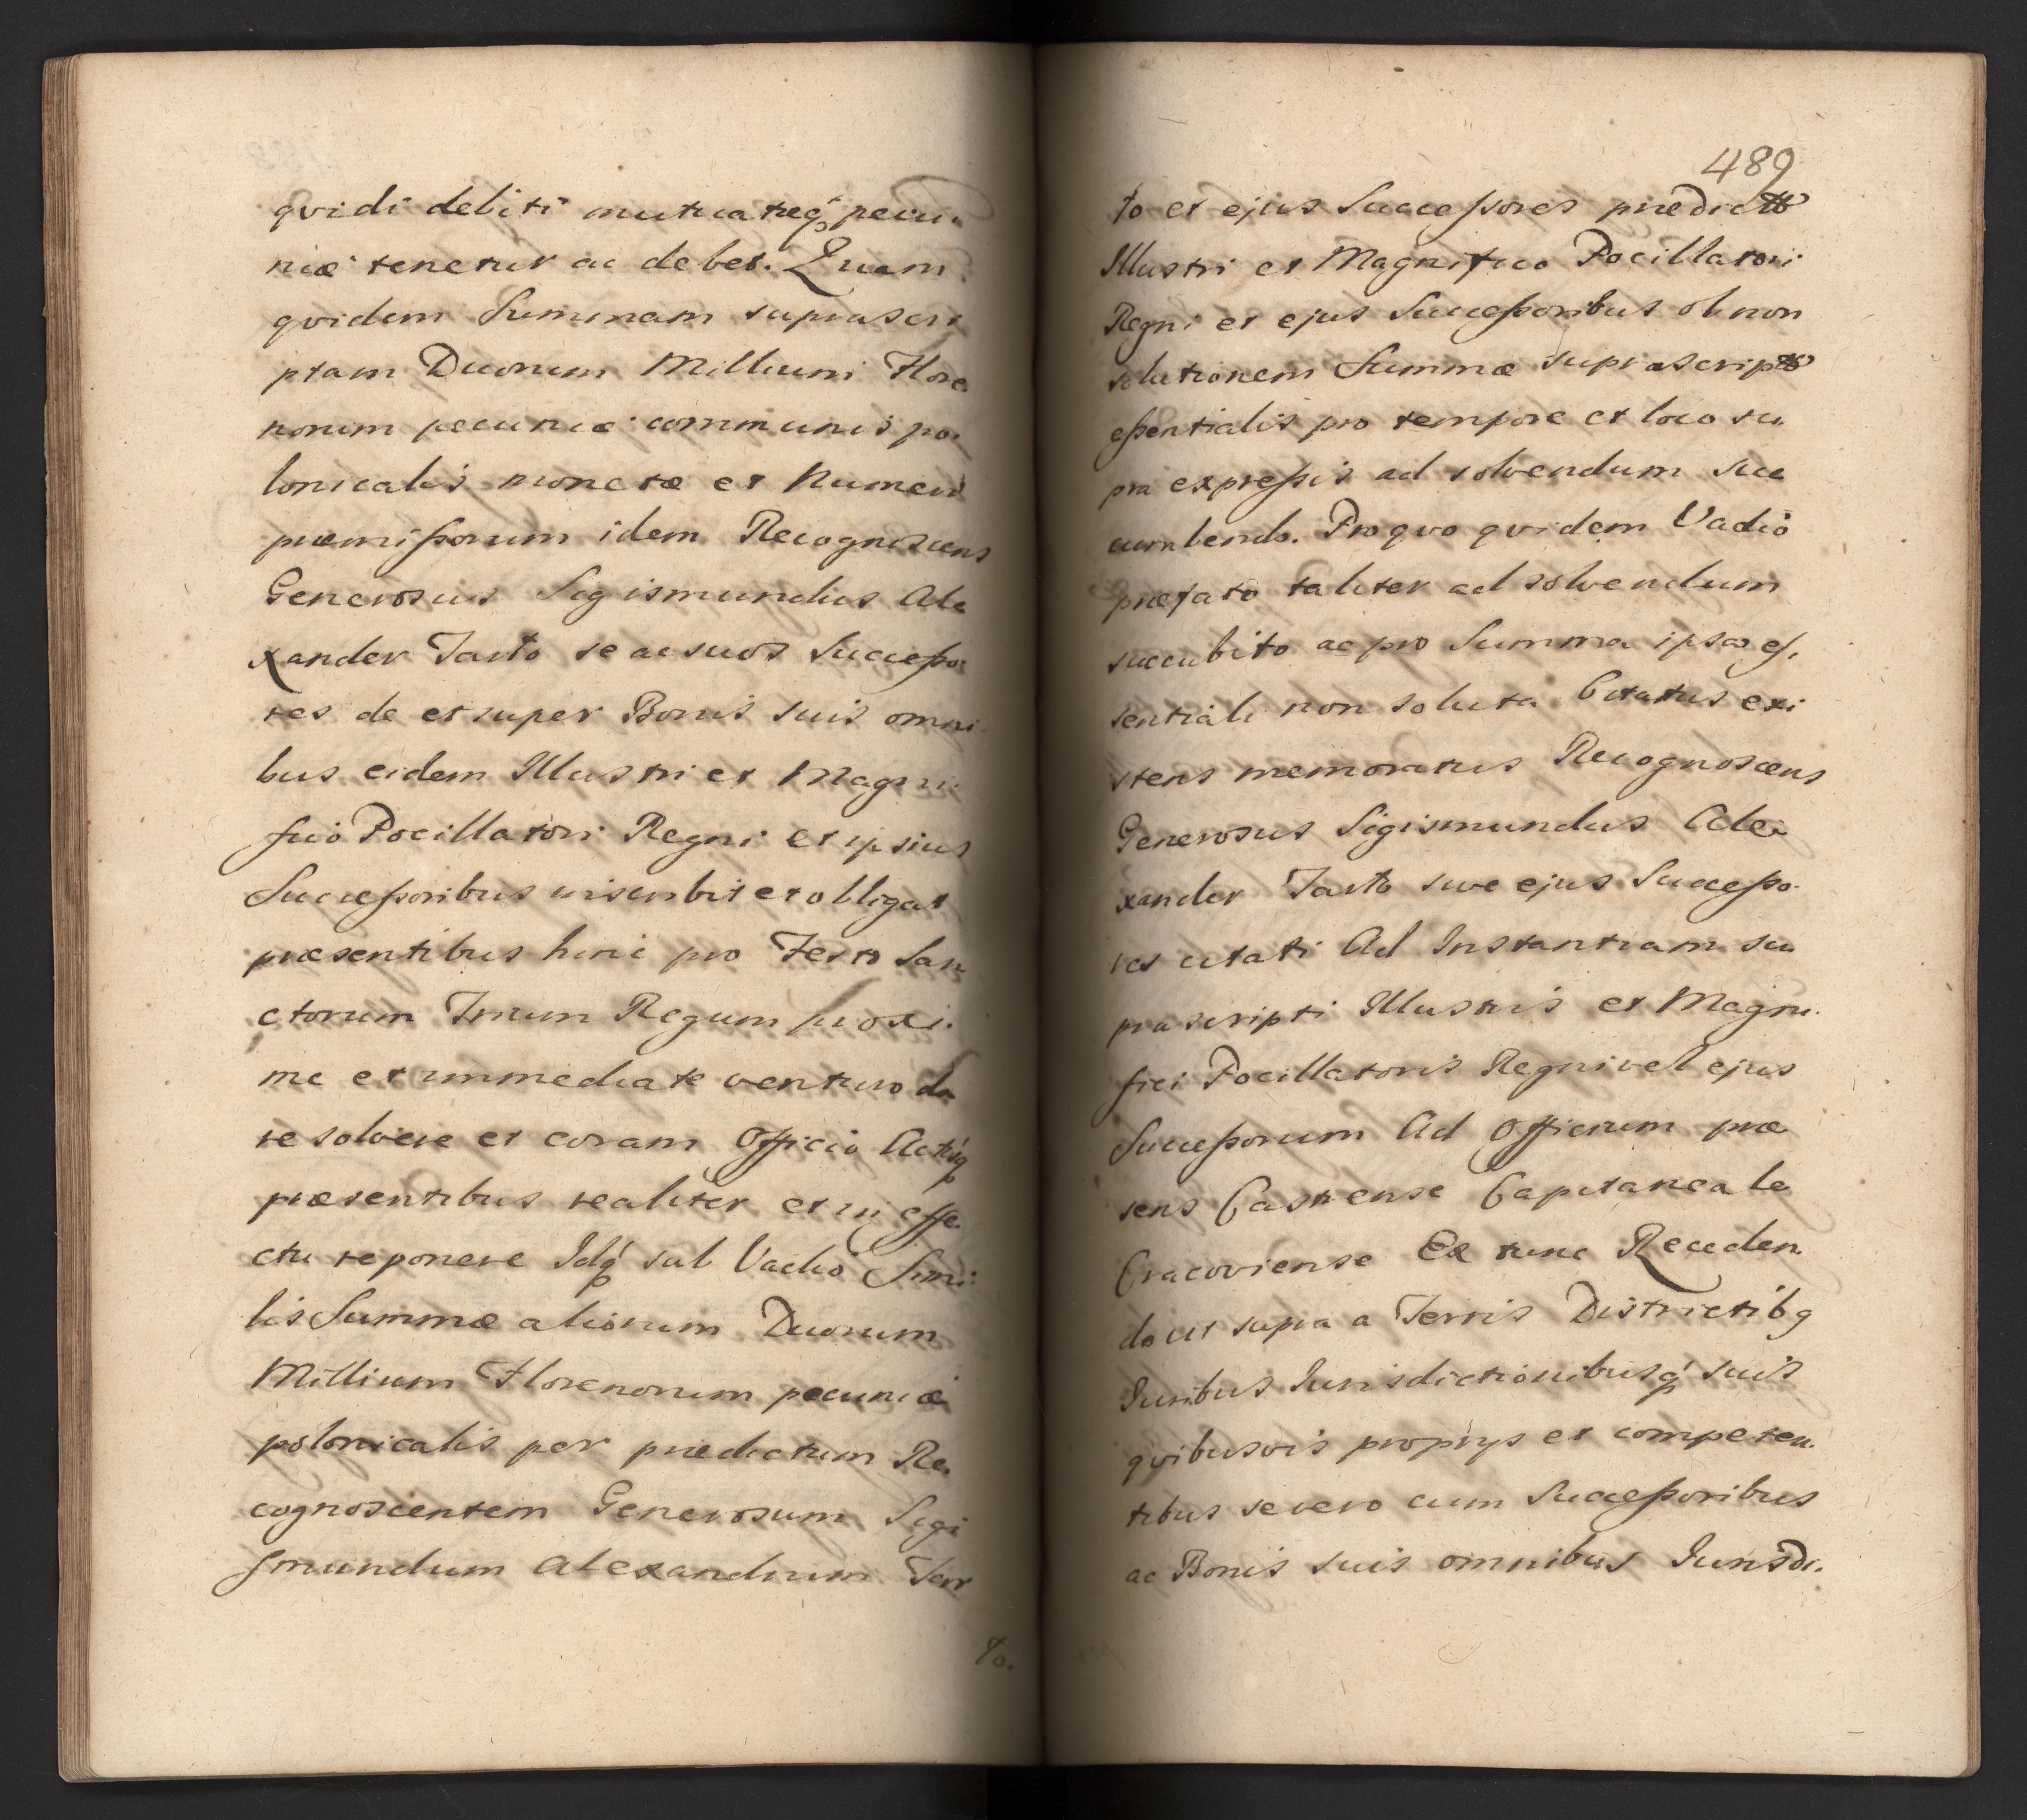 qvidi debiti mutuateq́ꝫ pecu-
niæ tenetur ac debet. Quam
qvidem Summam suprascri
ptam Duorum Millium Flore
norum pecuniæ communis po-
lonicalis monetæ et Numeri
præmissorum idem Recognoscens
Generosus Sigismundus Ale
xander Tarto se ac suos Successo-
res de et super Bonis suis omni-
bus eidem Illustri et Magni-
fico Pocillatori Regni et ipsius
Successoribus inscribit et obligat
præsentibus hinc pro Festo San
ctorum Trium Regum proxi-
me et immediate venturo da
re solvere et coram Officio Actisq́ꝫ
præsentibus realiter et in effe
ctu reponere Idq́ꝫ sub Vadio Simi-
lis Summæ aliorum Duorum
Millium Florenorum pecuniæ
polonicalis per prædictum Re-
cognoscentem Generosum Sigi
smundum Alexandrum Tar
to.
489
to et ejus Successores prædicto
Illustri et Magnifico Pocillatori
Regni et ejus Successoribus ob non
solutionem Summæ suprascriptæ
essentialis pro tempore et loco su-
pra expressis ad solvendum suc
cumbendo. Pro qvo qvidem Vadio
præfato taliter ad solvendum
succubito ac pro Summa ipsa es-
sentiali non soluta Citatus exi
stens memoratus Recognoscens
Generosus Sigismundus Ale-
xander Tarto sive ejus Successo-
res citati Ad Instantiam su
prascripti Illustris et Magni-
fici Pocillatoris Regni vel ejus
Successorum Ad Officium præ
sens Castrense Capitaneale
Cracoviense Ex tunc Receden-
do ut supra a Terris Districtibꝫ
Juribus Jurisdictionibusq́ꝫ suis
qvibusvis proprijs et competen-
tibus se vero cum Successoribus
ac Bonis suis omnibus Jurisdi-